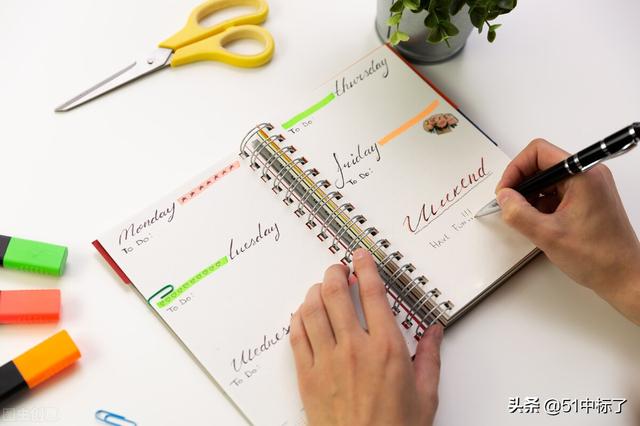 Monday
To Do:
tuesday
To Do:
Wednes
To Do:
thursday
To Do
friday
To Do:
Weekend
HAVE FUN!!!
头条 @51中标了